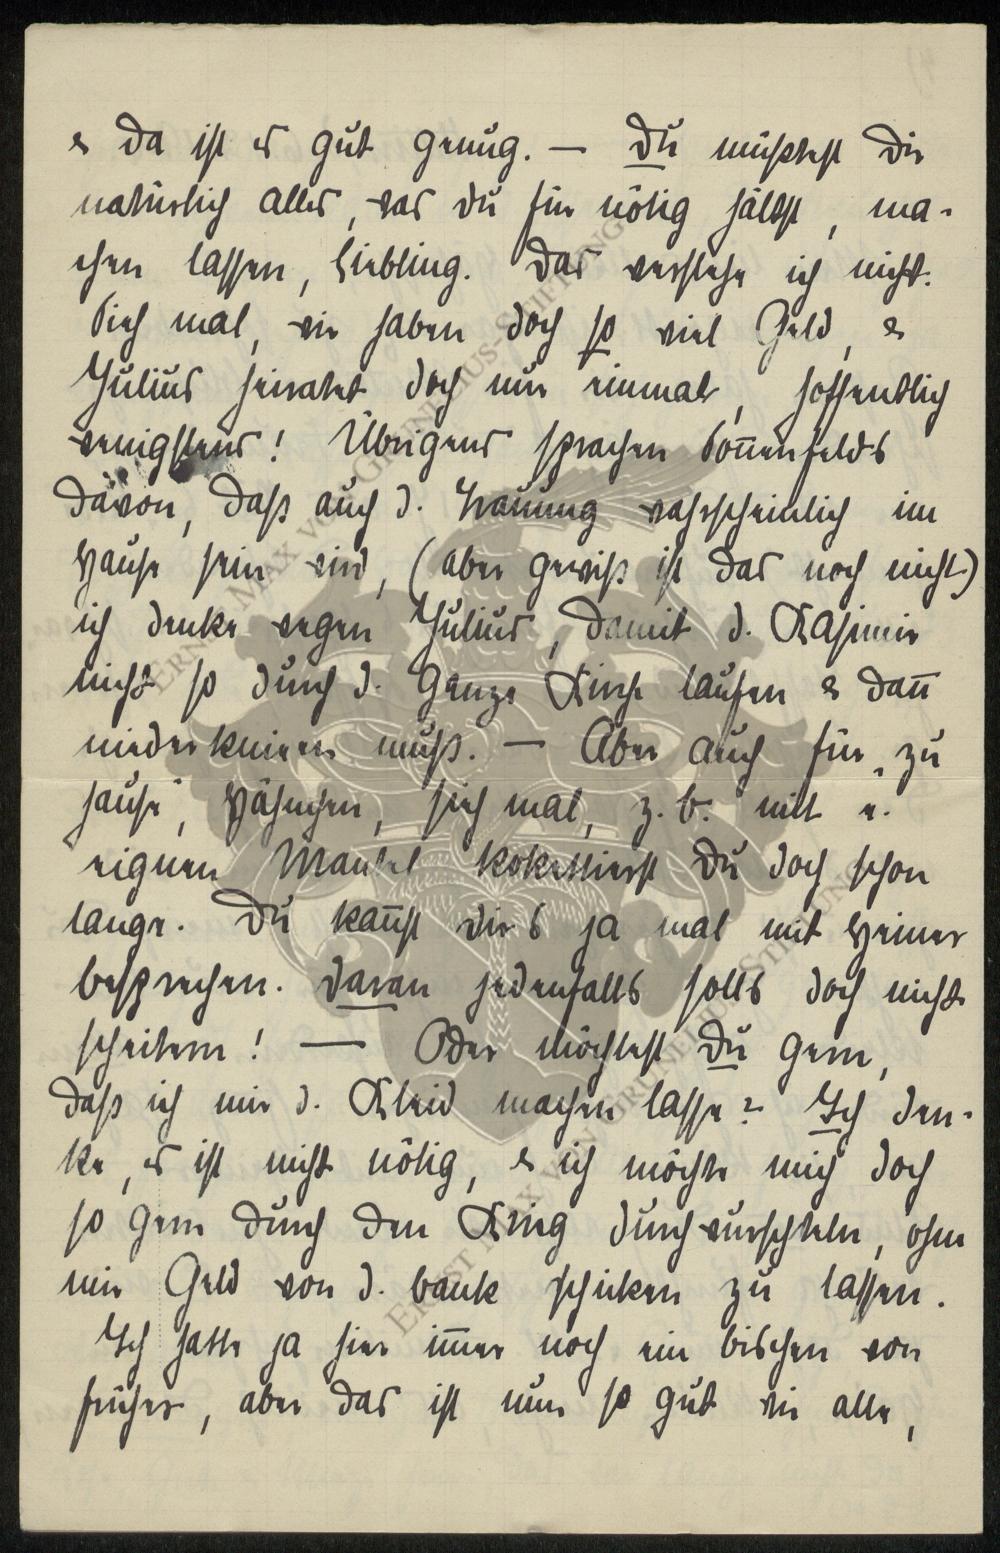 & da ist es gut genug. — Du müsstest Dir
natürlich alles, was du für nötig hältst, ma-
chen lassen, Liebling. Das verstehe ich nicht.
Sieh mal, wir haben doch so viel Geld, &
Julius heiratet doch nur einmal, hoffentlich
wenigstens! Übrigens sprachen Son̅enfelds
davon, daß auch d. Trauung wahrscheinlich im
Hause sein wird, (aber gewiß ist das noch nicht)
ich denke wegen Julius, damit d. Kasimir
nicht so durch d. ganze Kirche laufen & dan̅
niederknieen muß. — Aber auch für „zu
hause“, Hähnchen, sieh mal, z. b. mit e.
eignen Mantel kokettierst Du doch schon
lange. Du kan̅st dirs ja mal mit Heiner
besprechen. Daran jedenfalls solls doch nicht
scheitern! — Oder möchtest Du gern,
daß ich mir d. Kleid machen lasse? Ich den-
ke, es ist nicht nötig, & ich möchte mich doch
so gern durch den Krieg durchwurschteln, ohne
mir Geld von d. bank schicken zu lassen.
Ich hatte ja hier im̅er noch ein bischen von
früher, aber das ist nun so gut wie alle,
ERNST MAX VON GRUNELIUS-STIFTUNG
ERNST MAX VON GRUNELIUS-STIFTUNG